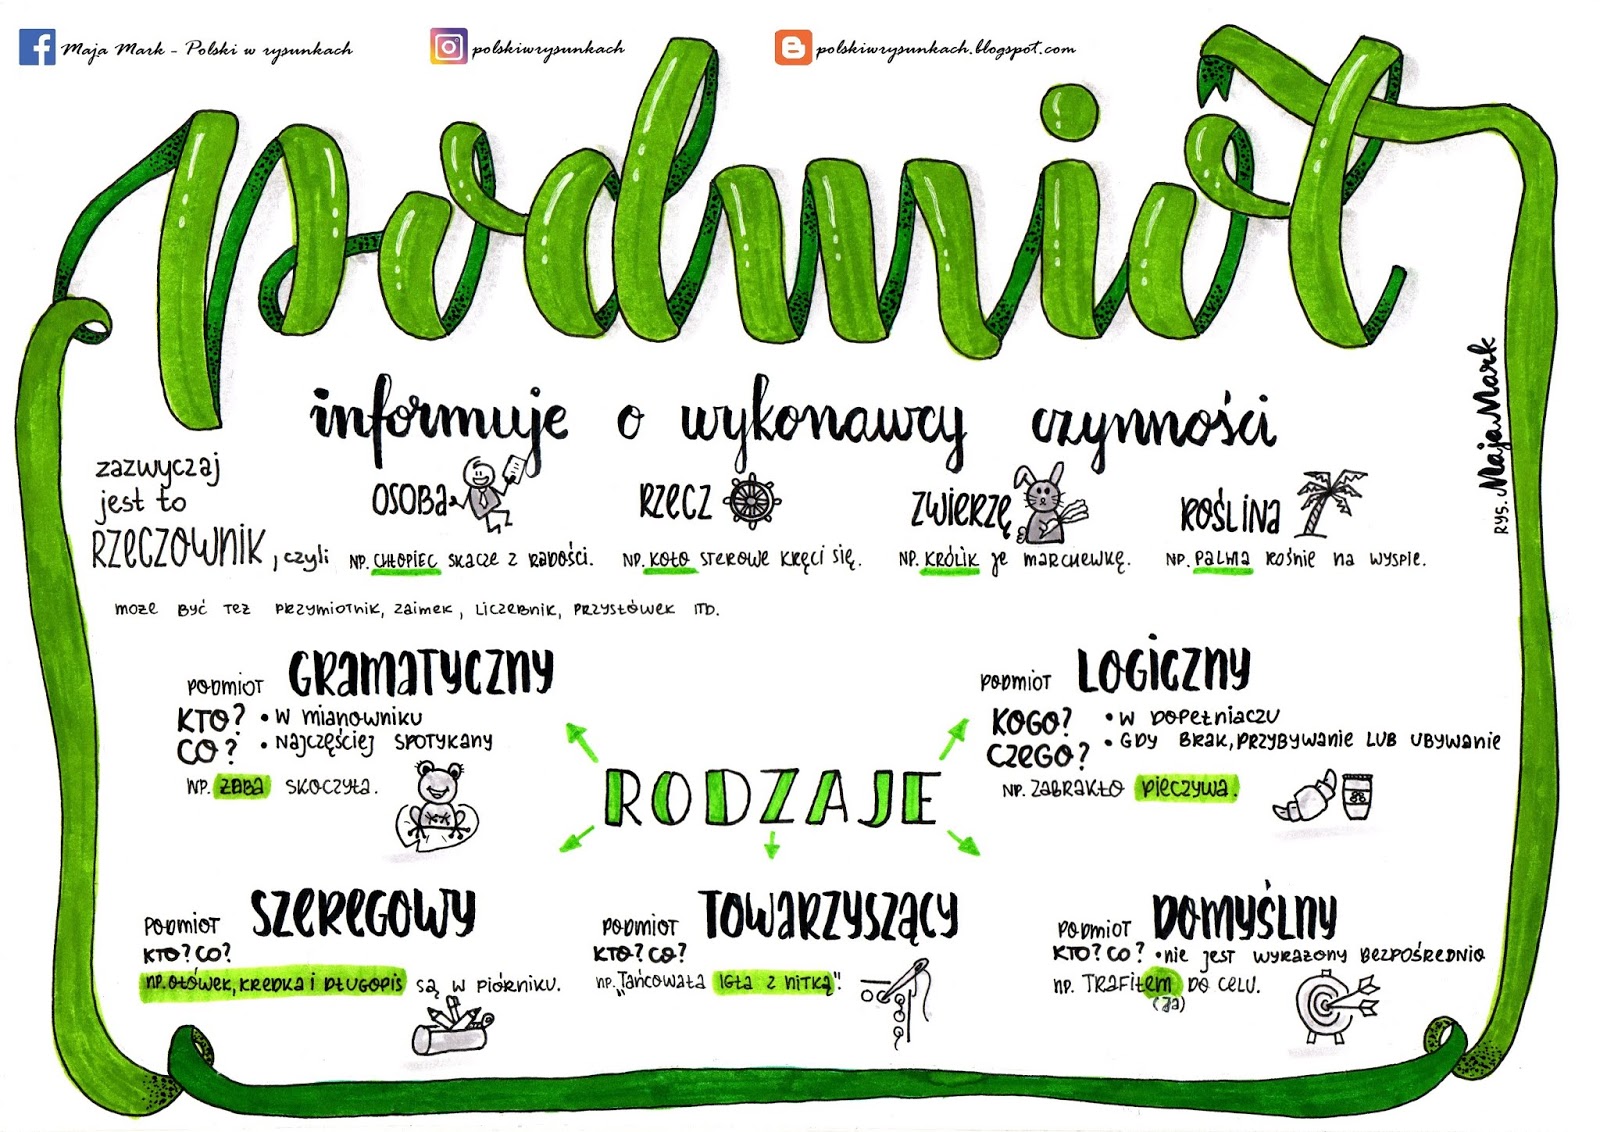 Maja Mark - Polski w rysunkach
polskiwrysunkach
polskiwrysunkach.blogspot.com
podmiot
informuje o wykonawcy czynności
zazwyczaj
jest to
RZECZOWNIK, czyli
OSOBA
NP. CHŁOPIEC SKACZE Z RADOŚCI.
RZECZ
NP. KOŁO STEROWE KRĘCI SIĘ.
ZWIERZĘ
NP. KRÓLIK je MARCHEWKĘ.
ROŚLINA
NP. PALMA ROŚNIE NA WYSPIE.
RYS. Maja Mark
MOŻE BYĆ TEŻ PRZYMIOTNIK, ZAIMEK, LICZEBNIK, PRZYSŁÓWEK ITD.
PODMIOT GRAMATYCZNY
KTO? • W MIANOWNIKU
CO? • NAJCZĘŚCIEJ SPOTYKANY
NP. ŻABA SKOCZYŁA.
PODMIOT LOGICZNY
KOGO? • W DOPEŁNIACZU
CZEGO? • GDY BRAK, PRZYBYWANIE LUB UBYWANIE
NP. ZABRAKŁO PIECZYWA.
RODZAJE
PODMIOT SZEREGOWY
KTO? CO?
NP. OŁÓWEK, KREDKA I DŁUGOPIS SĄ W PIÓRNIKU.
PODMIOT TOWARZYSZĄCY
KTO? CO?
NP. „TAŃCOWAŁA IGŁA Z NITKĄ".
PODMIOT DOMYŚLNY
KTO? CO? • NIE JEST WYRAŻONY BEZPOŚREDNIO
NP. TRAFIŁEM DO CELU.
(JA)